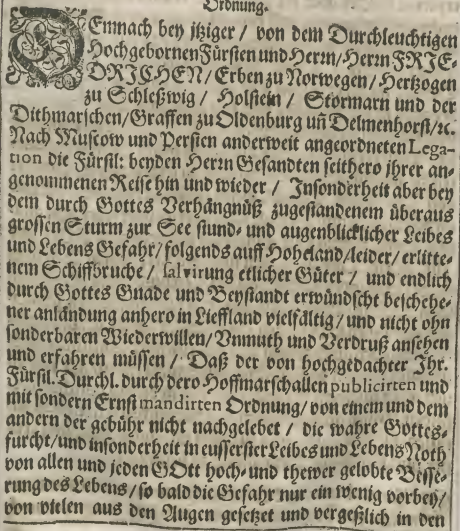 Ordnung.
DEmnach bey itziger / von dem Durchleuchtigen
Hochgebornen Fürsten und Herrn / Herrn FRIE-
DRICHEN / Erben zu Norwegen / Hertzogen
zu Schleßwig / Holstein / Stormarn und der
Dithmarschen / Graffen zu Oldenburg uñ Delmenhorst / ꝛc.
Nach Muscow und Persien anderweit angeordneten Lega-
tion die Fürstl: beyden Herrn Gesandten seithero jhrer an-
genommenen Reise hin und wieder / Insonderheit aber bey
dem durch Gottes Verhängnüß zugestandenem überaus
grossen Sturm zur See stund- und augenblicklicher Leibes
und Lebens Gefahr / folgends auff Hohcland / leider / erlitte-
nem Schiffbruche / salvirung etlicher Güter / und endlich
durch Gottes Gnade und Beystandt erwündscht beschehe-
ner anländung anhero in Lieffland vielfältig / und nicht ohn
sonderbaren Wiederwillen / Vnmuth und Verdruß ansehen
und erfahren müssen / Daß der von hochgedachter Ihr.
Fürstl. Durchl. durch dero Hoffmarschallen publicirten und
mit sondern Ernst mandirten Ordnung / von einem und dem
andern der gebühr nicht nachgelebet / die wahre Gottes-
furcht / und insonderheit in eusserster Leibes und Lebens Noth
von allen und jeden GOtt hoch- und thewer gelobte Besse-
rung des Lebens / so bald die Gefahr nur ein wenig vorbey /
von vielen aus den Augen gesetzet und vergeßlich in den